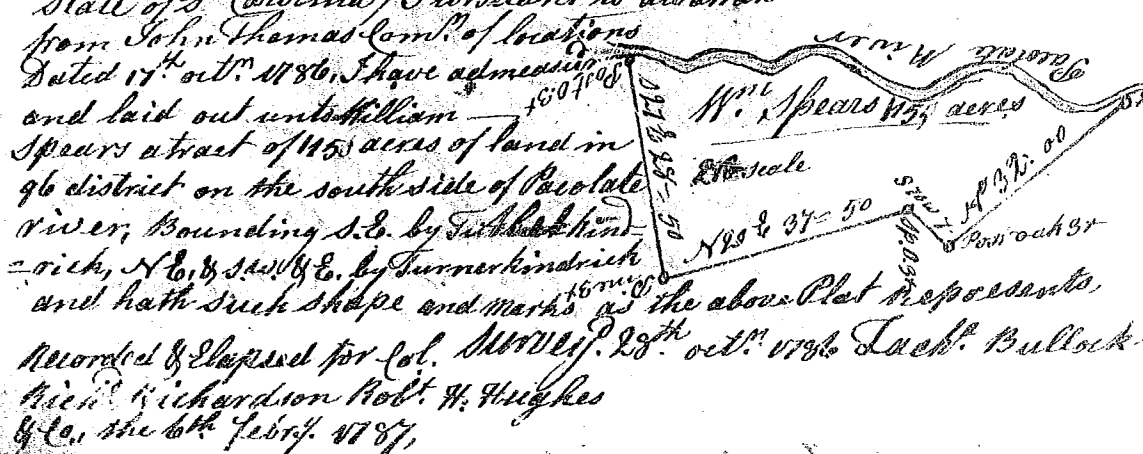 State of S. Carolina / Pursuant to a warrant
from John Thomas Comr. of locations
Dated 17th octr. 1786, I have admeasurd.
and laid out unto William
Spears a tract of 115 acres of land in
96 district on the south side of Pacolate
river, Bounding S.E. by Turner kind=
=rich, N E. & S.W. & E. by Turner kindrick
and hath such shape and marks as the above Plat Represents,
Survey'd. 28th octr. 1786 Zachr. Bullock
Recorded & Elapsed for Col.
Richd. Richardson Robt. H. Hughes
& Co., the 6th Febry. 1787,
Pacolate River
Wm. Spears 115, acres
20 scale
Post O. 3x
N 89 E 37=50
32:00
Post oak 3x
Pine 3x